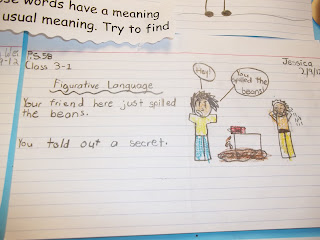 se words have a meaning
usual meaning. Try to find
P.S.58
Class 3-1
Jessica
Figurative Language
Hey!
You spilled the
beans!
Your friend here just spilled
the beans.
You told out a secret.